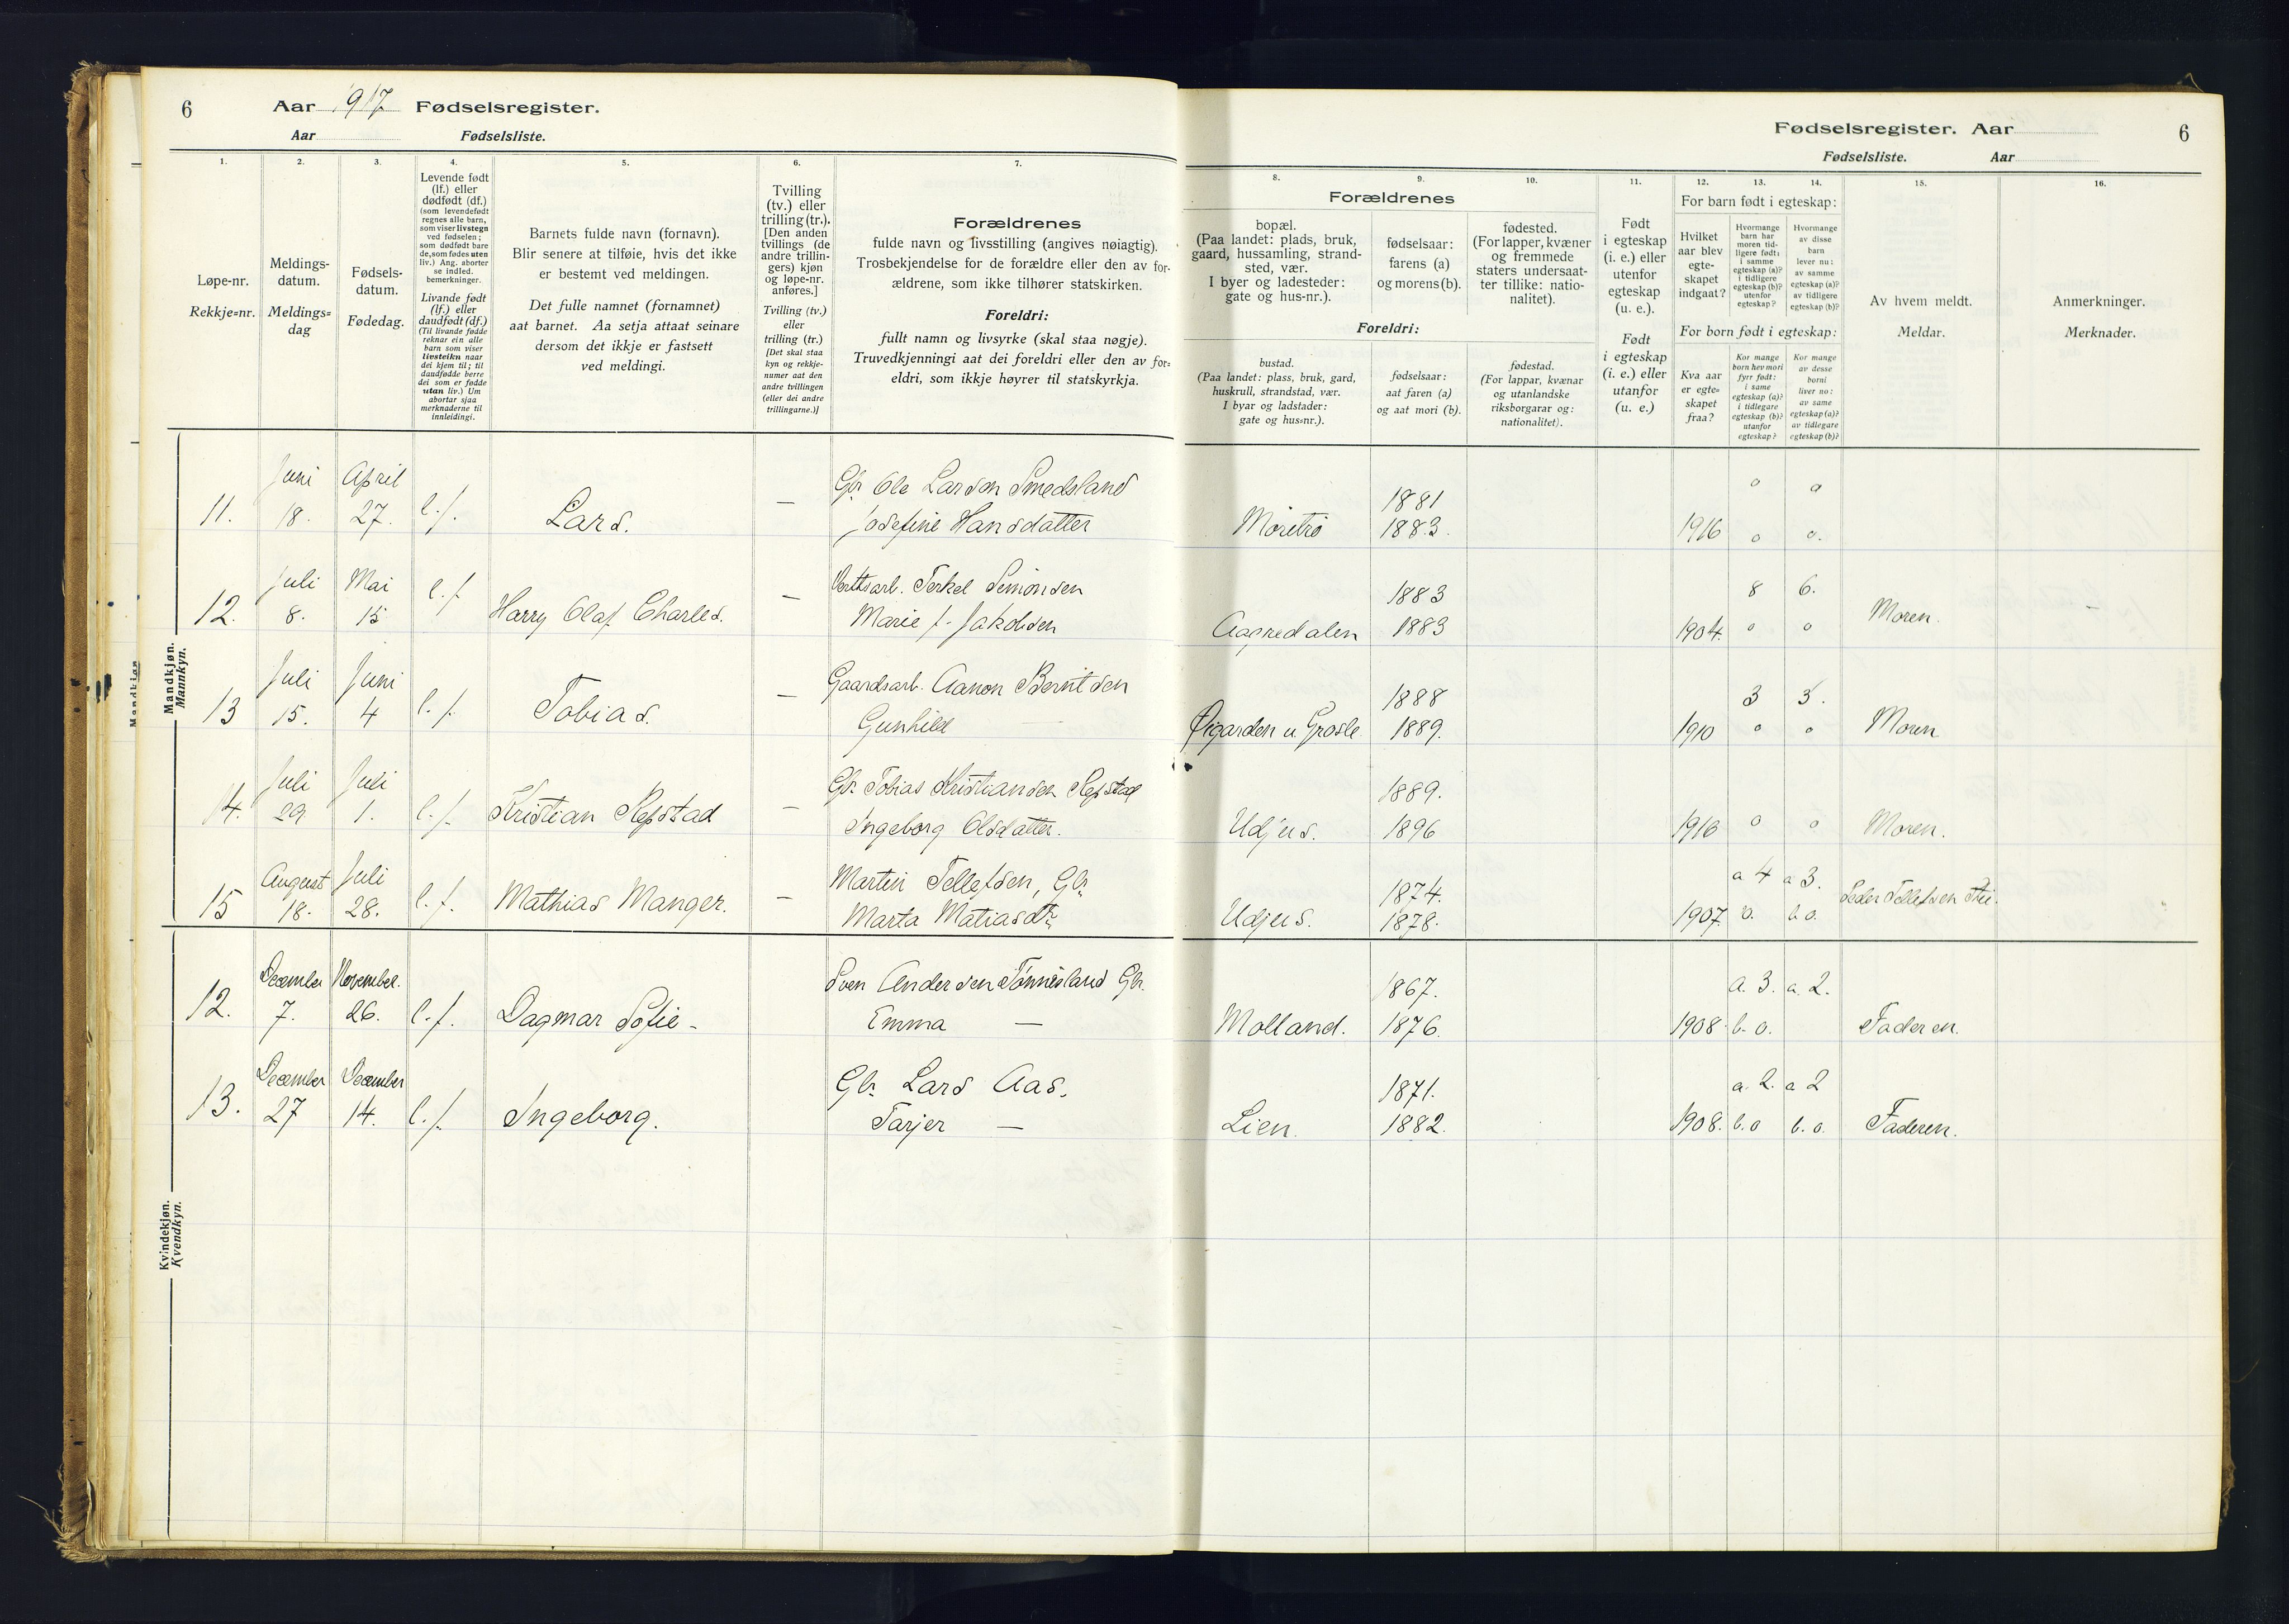 6 Aar 1917 Fødselsregister.
Aar Fødselsliste.
Fødselsregister. Aar 6
Fødselsliste. Aar
1. 2. 3. 4. 5. 6. 7. 8. 9. 10. 11. 12. 13. 14. 15. 16.
Løpe-nr.
Rekkje=nr.
Meldings-
datum.
Meldings=
dag
Fødsels-
datum.
Fødedag.
Levende født
(lf.) eller
dødfødt (df.)
(som levendefødt
regnes alle barn,
som viser livstegn
ved fødselen;
som dødfødt bare
de, som fødes uten
liv.) Ang. aborter
se indled.
bemerkninger.
Livande født
(lf.) eller
daudfødt (df.)
(Til livande fødde
reknar ein alle
barn som viser
livsteikn naar
dei kjem til; til
daudfødde berre
dei som er fødde
utan liv.) Um
abortar sjaa
merknaderne til
innleidingi.
Barnets fulde navn (fornavn).
Blir senere at tilføie, hvis det ikke
er bestemt ved meldingen.
Det fulle namnet (fornamnet)
aat barnet. Aa setja attaat seinare
dersom det ikkje er fastsett
ved meldingi.
Tvilling
(tv.) eller
trilling (tr.).
[Den anden
tvillings (de
andre trillin-
gers) kjøn
og løpe-nr.
anføres.]
Tvilling (tv.)
eller
trilling (tr.)
[Det skal staa
kyn og rekkje-
numer aat den
andre tvillingen
(eller dei andre
trillingarne.)]
Forældrenes
fulde navn og livsstilling (angives nøiagtig).
Trosbekjendelse for de forældre eller den av for-
ældrene, som ikke tilhører statskirken.
Foreldri:
fullt namn og livsyrke (skal staa nøgje).
Truvedkjenningi aat dei foreldri eller den av for=
eldri, som ikkje høyrer til statskyrkja.
Forældrenes
bopæl.
(Paa landet: plads, bruk,
gaard, hussamling, strand-
sted, vær.
I byer og ladesteder:
gate og hus-nr.).
fødselsaar:
farens (a)
og morens (b).
fødested.
(For lapper, kvæner
og fremmede
staters undersaat-
ter tillike: natio-
nalitet).
Foreldri:
bustad.
(Paa landet: plass, bruk, gard,
huskrull, strandstad, vær.
I byar og ladstader:
gate og hus=nr.).
fødselsaar:
aat faren (a)
og aat mori (b).
fødestad.
(For lappar, kvænar
og utanlandske
riksborgarar og:
nationalitet).
Født
i egteskap
(i. e.) eller
utenfor
egteskap
(u. e.).
Født
i egteskap
(i. e.) eller
utanfor
(u. e.)
For barn født i egteskap:
Hvilket
aar blev
egte-
skapet
indgaat?
Hvormange
barn har
moren tid-
ligere født:
i samme
egteskap (a)?
i tidligere
egteskap (b)?
utenfor
egteskap?
Hvormange
av disse
barn
lever nu:
av samme
egteskap (a)?
av tidligere
egteskap (b)?
For born født i egteskap:
Kva aar
er egte=
skapet
fraa?
Kor mange
born hev mori
fyrr født:
i same
egteskap (a)?
i tidlegare
egteskap (b)?
utanfor
egteskap?
Kor mange
av desse
borni
liver no:
av same
egteskap (a)?
av tidlegare
egteskap (b)?
Av hvem meldt.
Meldar.
Anmerkninger.
Merknader.
Mandkjøn.
Mannkyn.
Juni April Gbr. Ole Larsen Smedsland 1881 0 0
11. 18. 27. l. f. Lars. — Josefine Hansdatter Moretrø 1883. 1916 0 0.
Juli Mai Terkel Simonsen 1883 8 6.
12. 8. 15 l. f. Harry Olaf Charles. — Marie f. Jakobsen Aagnedalen 1883 1904. 0 0 Moren. –
Juli Juni Gaardsarb. Aanon Berntsen 1888 3 3.
13 15. 4 l. f. Tobias. — Gunhild — Øigarden u. Grosle 1889. 1910 0 0 Moren
Juli Juli Gbr. Tobias Kristiansen Repstad 1889.
14. 29. 1. l. f. Kristian Repstad — Ingeborg Olsdatter. Udjus. 1896 1916 0 0 Moren.
August Juli Martin Tellefsen, Gbr. 1874. a 4 a 3.
15 18. 28. l. f. Mathias Manger. — Marta Matiasdtr. Udjus. 1878. 1907. 0. b 0. Peder Tellefsen
December November. Sven Andersen Tønnesland Gbr. 1867. a. 3. a. 2.
12. 7. 26. l. f. Dagmar Sofie - Emma — Molland. 1876. 1908. b. 0. Faderen.
December December Gbr. Lars Aas. 1871. a. 2. a 2
13. 27 14. l. f. Ingeborg. Tarjer — Lien. 1882. 1908. b. 0 b. 0. Faderen.
Kvindekjøn.
Kvendkyn.